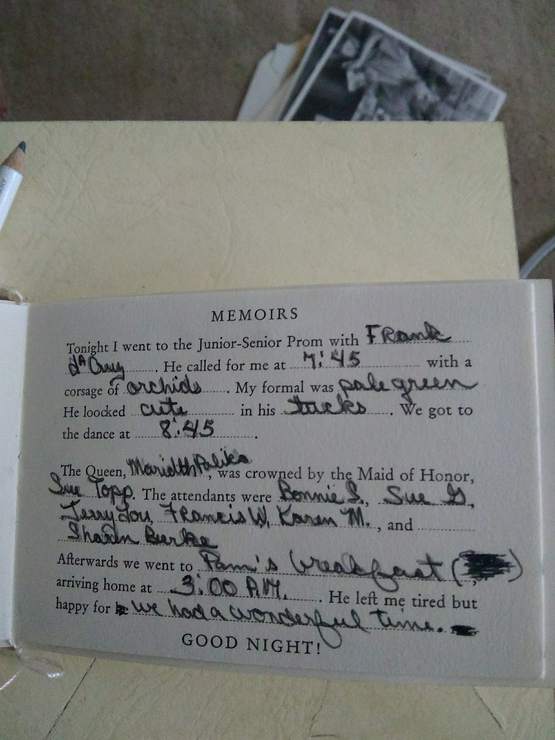 MEMOIRS
Tonight I went to the Junior-Senior Prom with Frank
. He called for me at 7:45 with a
corsage of orchids. My formal was pale green
He loocked cute in his tucks. We got to
the dance at 8:45.
The Queen, , was crowned by the Maid of Honor,
Sue Topp. The attendants were Bonnie S., Sue G.,
Jerry Lou, Francis W, Karen M., and
Sharon Burke
Afterwards we went to Pam's breakfast ( )
arriving home at 3:00 A.M. He left me tired but
happy for we had a wonderful time.
GOOD NIGHT!